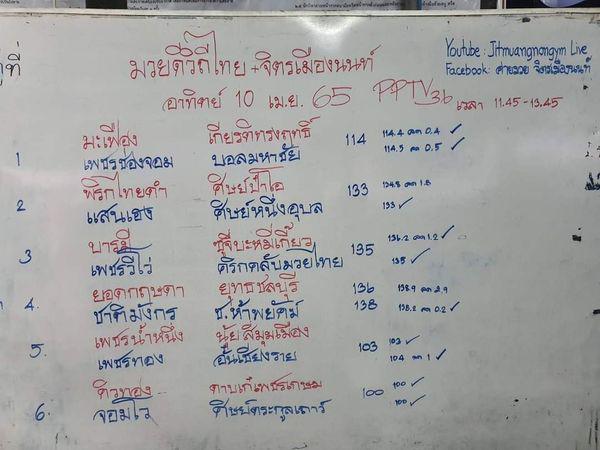 คู่ที่
มวยดีวิถีไทย + จิตรเมืองนนท์
Youtube : Jitmuangnongym Live
Facebook: ค่ายมวย จิตรเมืองนนท์
อาทิตย์ 10 เม.ย. 65 PPTV36 เวลา 11.45 - 13.45
มะเฟือง เกียรติทรงฤทธิ์ 114 114.4 ลด 0.4 ✓
1 เพชรช่องจอม บอลมหาชัย 114.5 ลด 0.5 ✓
พริกไทยดำ ศิษย์ป๋าโอ 133 134.8 ลด 1.8
2 แสนเฮง ศิษย์หนึ่งอุบล 133 ✓
บารมี ซุ้จีบะหมี่เกี๊ยว 135 136.2 ลด 1.2 ✓
3 เพชรวีโว่ คริกคลับมวยไทย 135 ✓
ยอดกฤษดา ยุทธชลบุรี 136 138.9 ลด 2.9
4. ชาติมังกร ช.ห้าพยัคฆ์ 138 138.2 ลด 0.2 ✓
เพชรน้ำหนึ่ง นุ้ยสี่มุมเมือง 103 103 ✓
5. เพชรทอง อั๋นเชียงราย 104 ลด 1 ✓
คิวทอง ดาบเก๋เพชรเกษม 100 100 ✓
6. จอมโว ศิษย์ตระกูลเถาว์ 100 ✓